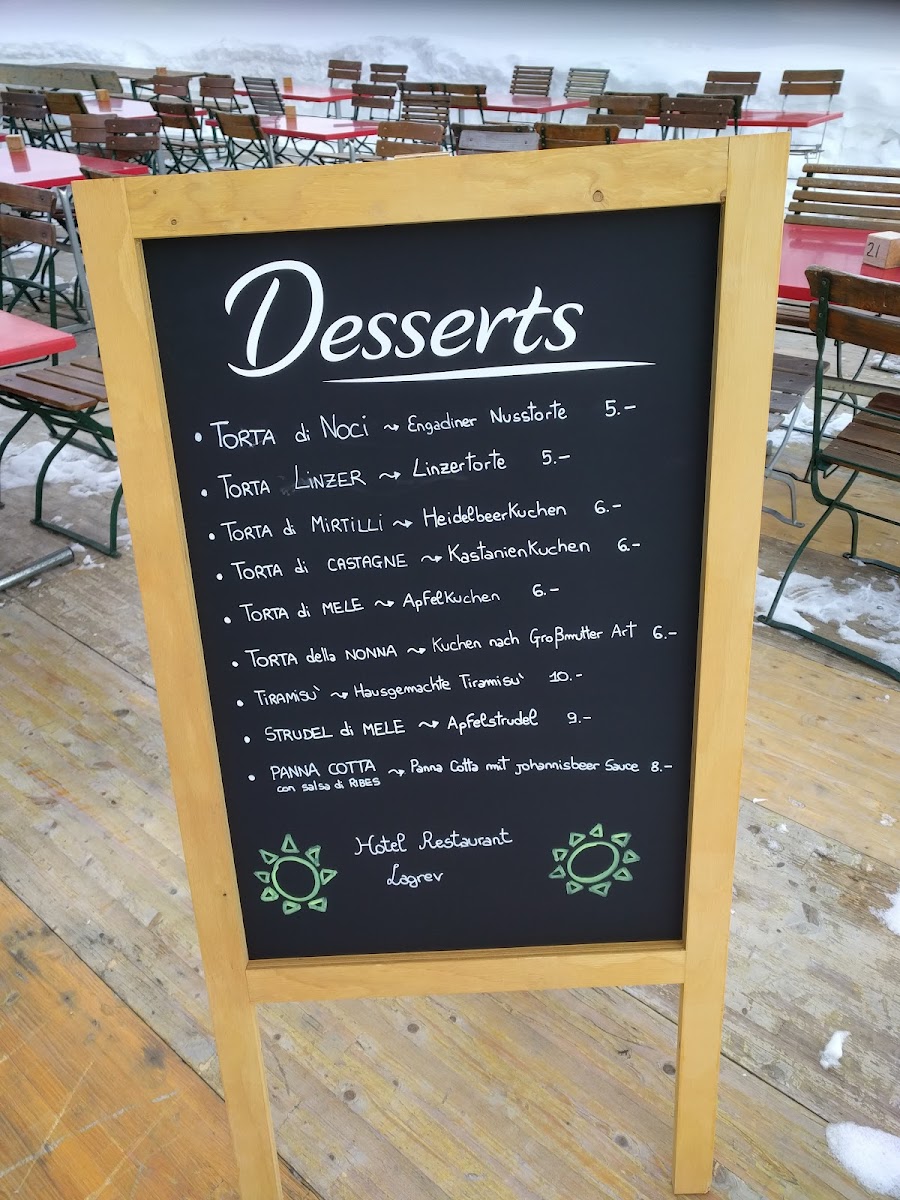 Desserts
• TORTA di NOCI ~> Engadiner Nusstorte 5.-
• TORTA LINZER ~> Linzertorte 5.-
• TORTA di MIRTILLI ~> HeidelbeerKuchen 6.-
• TORTA di CASTAGNE ~> KastanienKuchen 6.-
• TORTA di MELE ~> ApfelKuchen 6.-
• TORTA della NONNA ~> Kuchen nach Großmutter Art 6.-
• TIRAMISU' ~> Hausgemachte Tiramisu' 10.-
• STRUDEL di MELE ~> Apfelstrudel 9.-
• PANNA COTTA ~> Panna Cotta mit johannisbeer Sauce 8.-
con salsa di RIBES
Hotel Restaurant
Lagrev
21